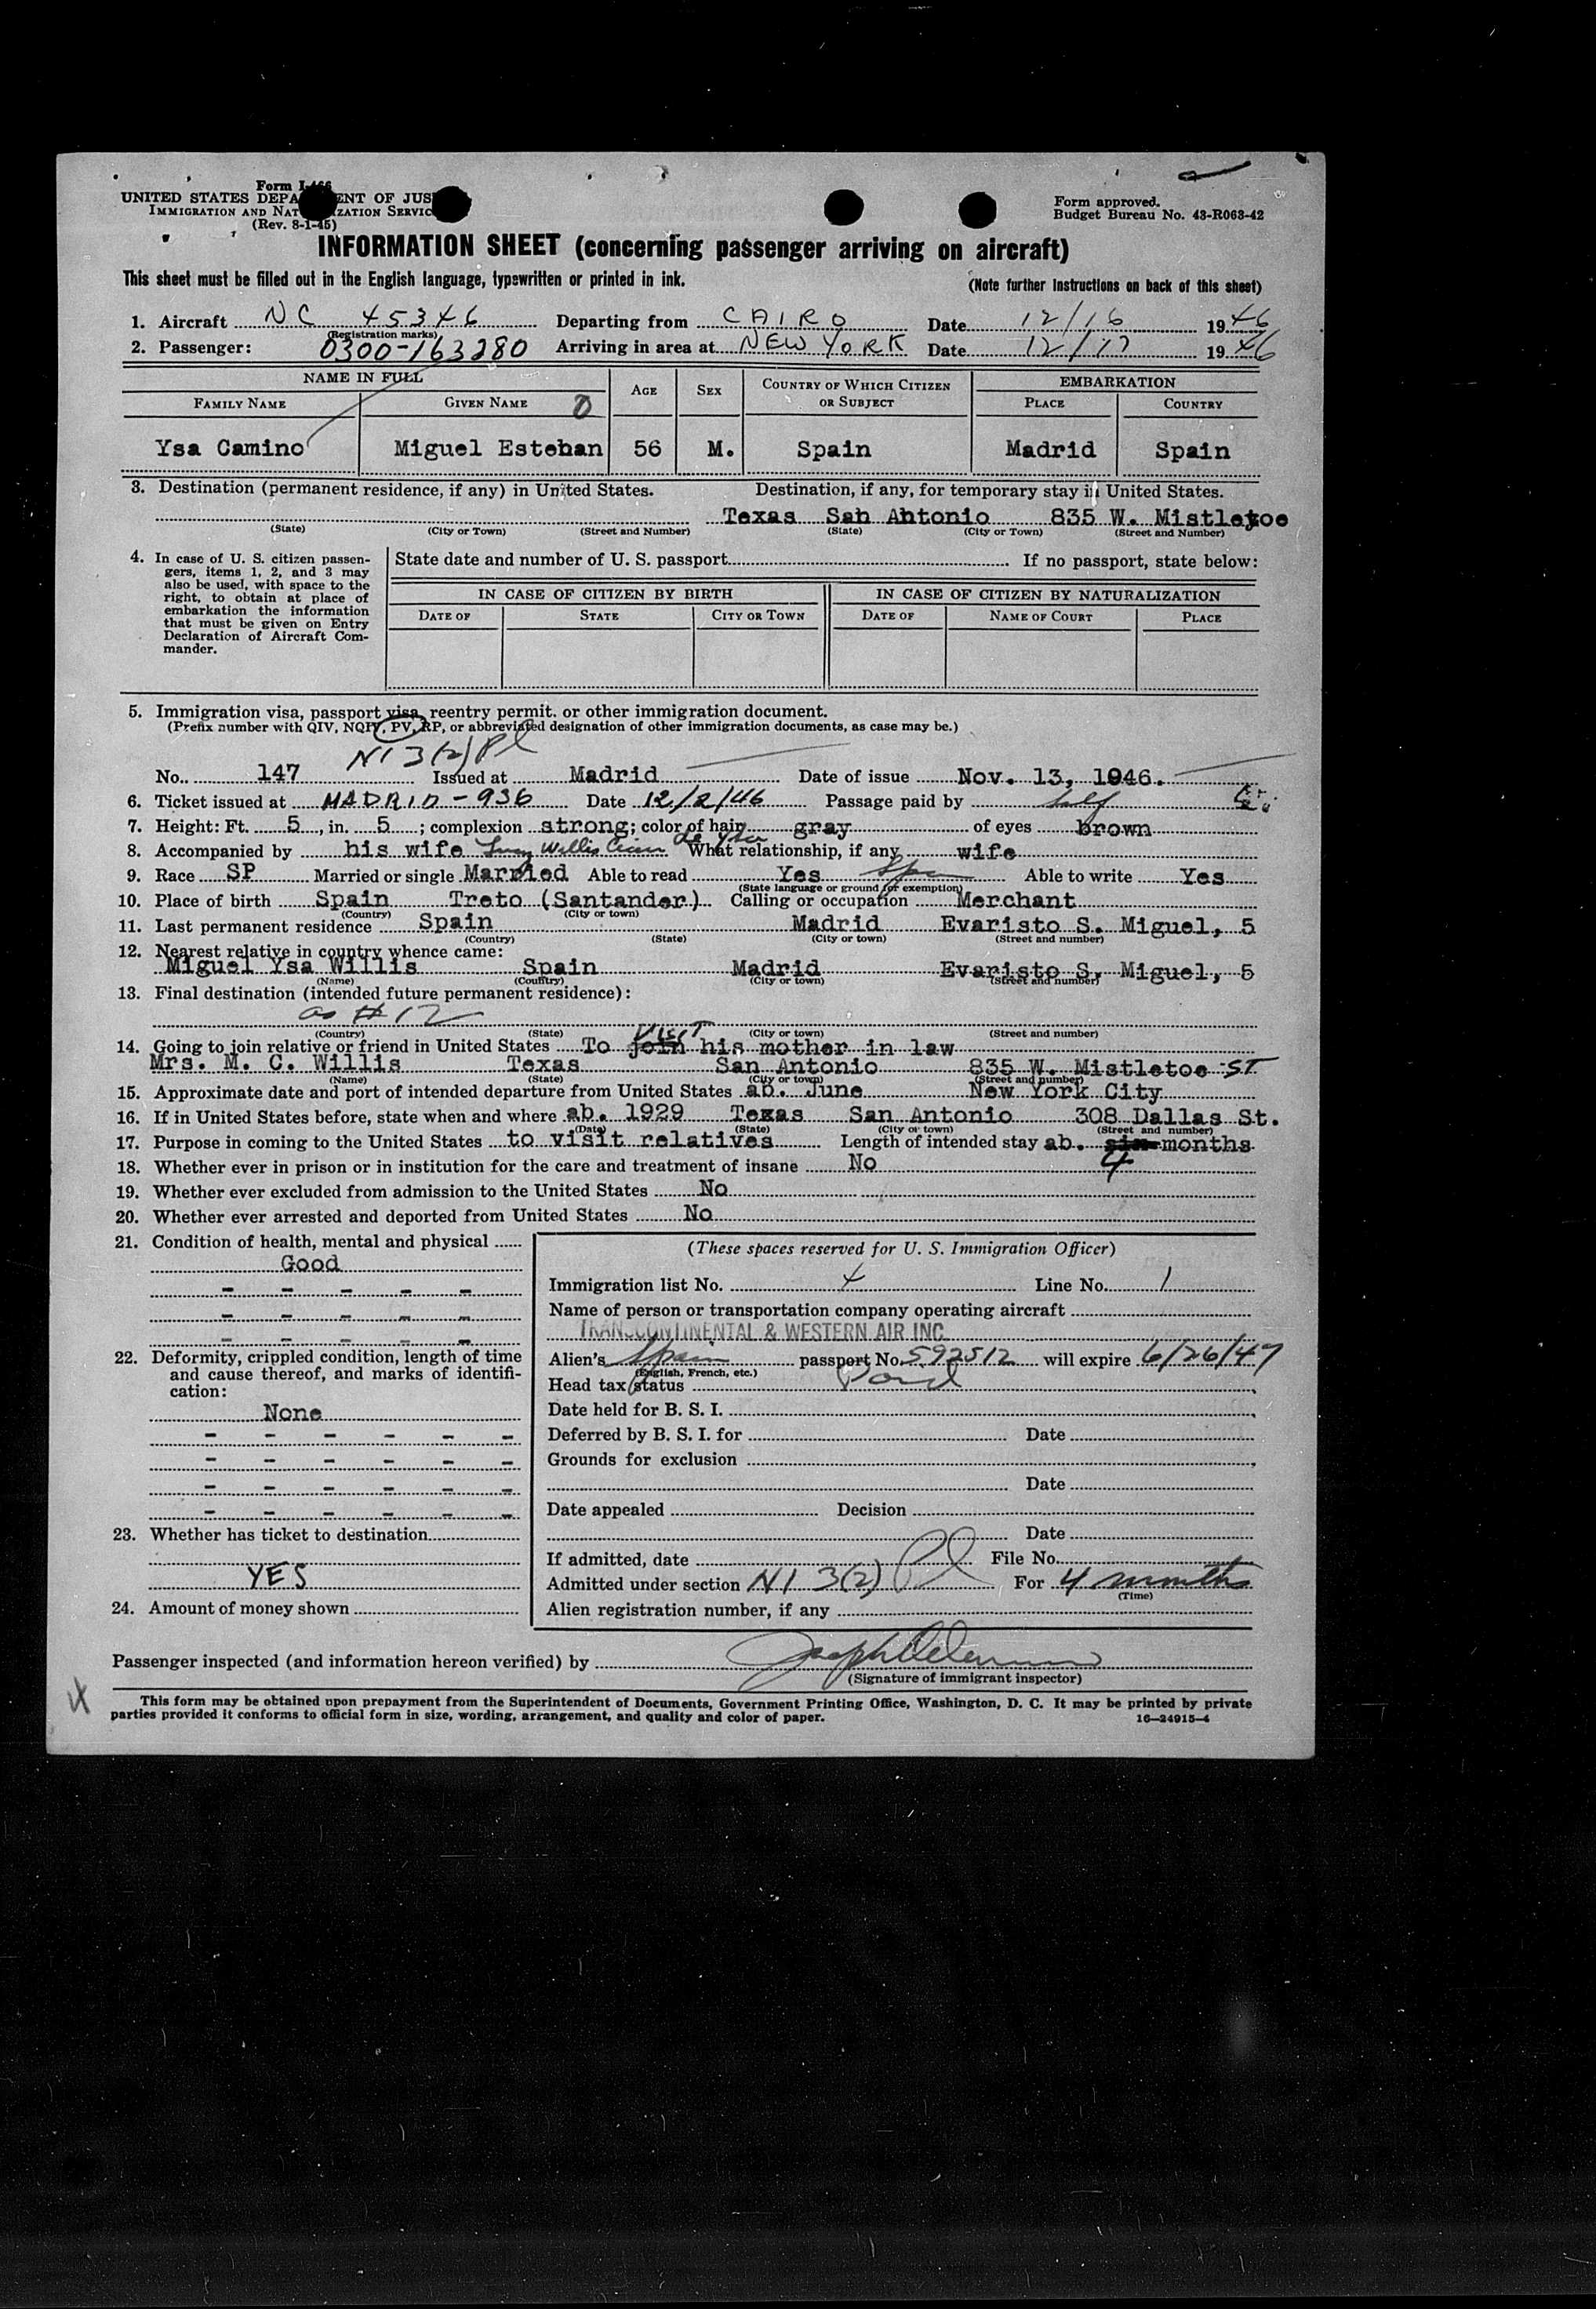 Form I-466
UNITED STATES DEPARTMENT OF JUSTICE
IMMIGRATION AND NATURALIZATION SERVICE
(Rev. 8-1-45)
Form approved.
Budget Bureau No. 43-R063-42
INFORMATION SHEET (concerning passenger arriving on aircraft)
This sheet must be filled out in the English language, typewritten or printed in ink. (Note further instructions on back of this sheet)
1. Aircraft NC 45346 Departing from CAIRO Date 12/16 1946
(Registration marks)
2. Passenger: 0300-163280 Arriving in area at NEW YORK Date 12/17 1946
NAME IN FULL AGE SEX COUNTRY OF WHICH CITIZEN OR SUBJECT EMBARKATION
FAMILY NAME GIVEN NAME PLACE COUNTRY
Ysa Camino Miguel Esteban 56 M. Spain Madrid Spain
3. Destination (permanent residence, if any) in United States. Destination, if any, for temporary stay in United States.
Texas San Antonio 835 W. Mistletoe
(State) (City or Town) (Street and Number) (State) (City or Town) (Street and Number)
4. In case of U. S. citizen passengers, items 1, 2, and 3 may also be used, with space to the right, to obtain at place of embarkation the information that must be given on Entry Declaration of Aircraft Commander.
State date and number of U. S. passport If no passport, state below:
IN CASE OF CITIZEN BY BIRTH IN CASE OF CITIZEN BY NATURALIZATION
DATE OF STATE CITY OR TOWN DATE OF NAME OF COURT PLACE
5. Immigration visa, passport visa, reentry permit, or other immigration document.
(Prefix number with QIV, NQIV, PV, RP, or abbreviated designation of other immigration documents, as case may be.)
NI 3(2) Pl
No. 147 Issued at Madrid Date of issue Nov. 13, 1946.
6. Ticket issued at MADRID-936 Date 12/2/46 Passage paid by self
7. Height: Ft. 5, in. 5; complexion strong; color of hair gray of eyes brown
8. Accompanied by his wife Lucy Willis de Ysa What relationship, if any wife
9. Race SP Married or single Married Able to read Yes Span Able to write Yes
(State language or ground for exemption)
10. Place of birth Spain Treto (Santander) Calling or occupation Merchant
(Country) (City or town)
11. Last permanent residence Spain Madrid Evaristo S. Miguel, 5
(Country) (State) (City or town) (Street and number)
12. Nearest relative in country whence came:
Miguel Ysa Willis Spain Madrid Evaristo S. Miguel, 5
(Name) (Country) (City or town) (Street and number)
13. Final destination (intended future permanent residence):
as #12
(Country) (State) (City or town) (Street and number)
VISIT
14. Going to join relative or friend in United States To join his mother in law
Mrs. M. C. Willis Texas San Antonio 835 W. Mistletoe ST
(Name) (State) (City or town) (Street and number)
15. Approximate date and port of intended departure from United States ab. June New York City
16. If in United States before, state when and where ab. 1929 Texas San Antonio 308 Dallas St.
(Date) (State) (City or town) (Street and number)
17. Purpose in coming to the United States to visit relatives Length of intended stay ab. six months
4
18. Whether ever in prison or in institution for the care and treatment of insane No
19. Whether ever excluded from admission to the United States No
20. Whether ever arrested and deported from United States No
21. Condition of health, mental and physical
Good
- - - - -
- - - - -
- - - - -
22. Deformity, crippled condition, length of time and cause thereof, and marks of identification:
None
- - - - - -
- - - - - -
- - - - - -
- - - - - -
23. Whether has ticket to destination
YES
24. Amount of money shown
(These spaces reserved for U. S. Immigration Officer)
Immigration list No. 4 Line No. 1
Name of person or transportation company operating aircraft
TRANSCONTINENTAL & WESTERN AIR INC.
Alien's Spain passport No. 592512 will expire 6/26/47
(English, French, etc.)
Head tax status Paid
Date held for B. S. I.
Deferred by B. S. I. for Date
Grounds for exclusion
Date
Date appealed Decision
Date
If admitted, date File No.
Admitted under section NI 3(2) Pl For 4 months
(Time)
Alien registration number, if any
Passenger inspected (and information hereon verified) by
(Signature of immigrant inspector)
4
This form may be obtained upon prepayment from the Superintendent of Documents, Government Printing Office, Washington, D. C. It may be printed by private
parties provided it conforms to official form in size, wording, arrangement, and quality and color of paper. 16—24915-4